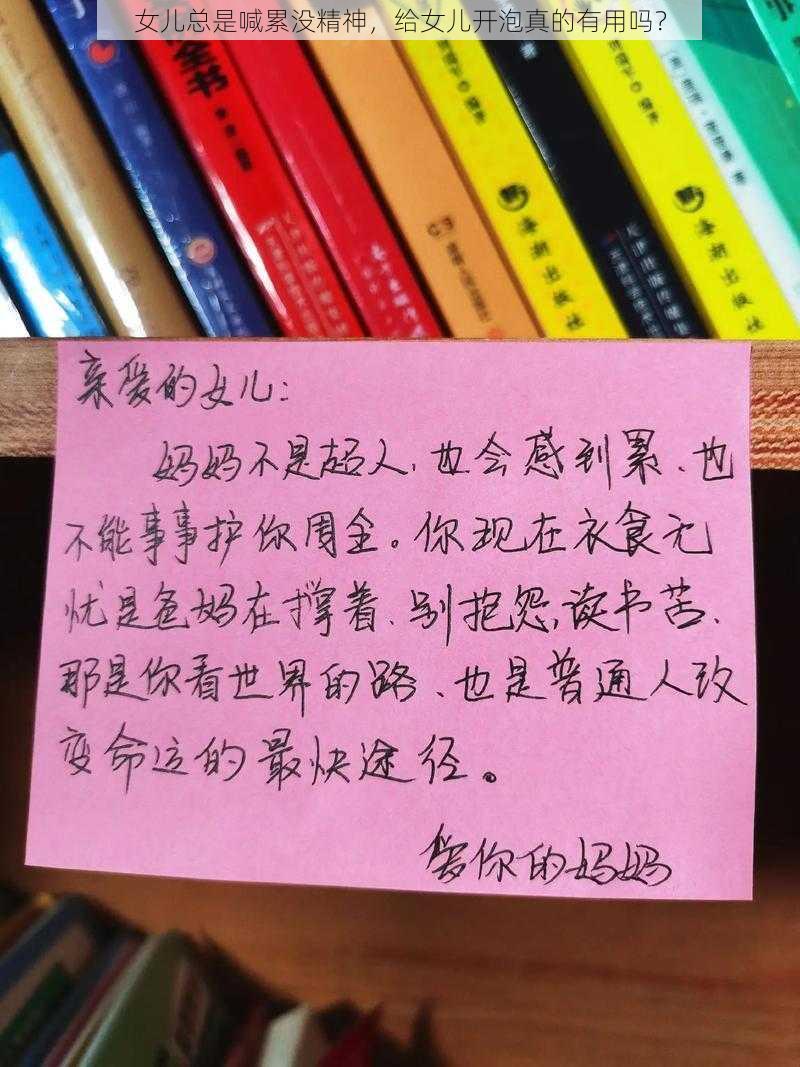 女儿总是喊累没精神，给女儿开泡真的有用吗？
全书
海潮出版社
海潮出版社
亲爱的女儿：
妈妈不是超人、也会感到累、也
不能事事护你周全。你现在衣食无
忧是爸妈在撑着、别抱怨读书苦、
那是你看世界的路、也是普通人改
变命运的最快途径。
爱你的妈妈